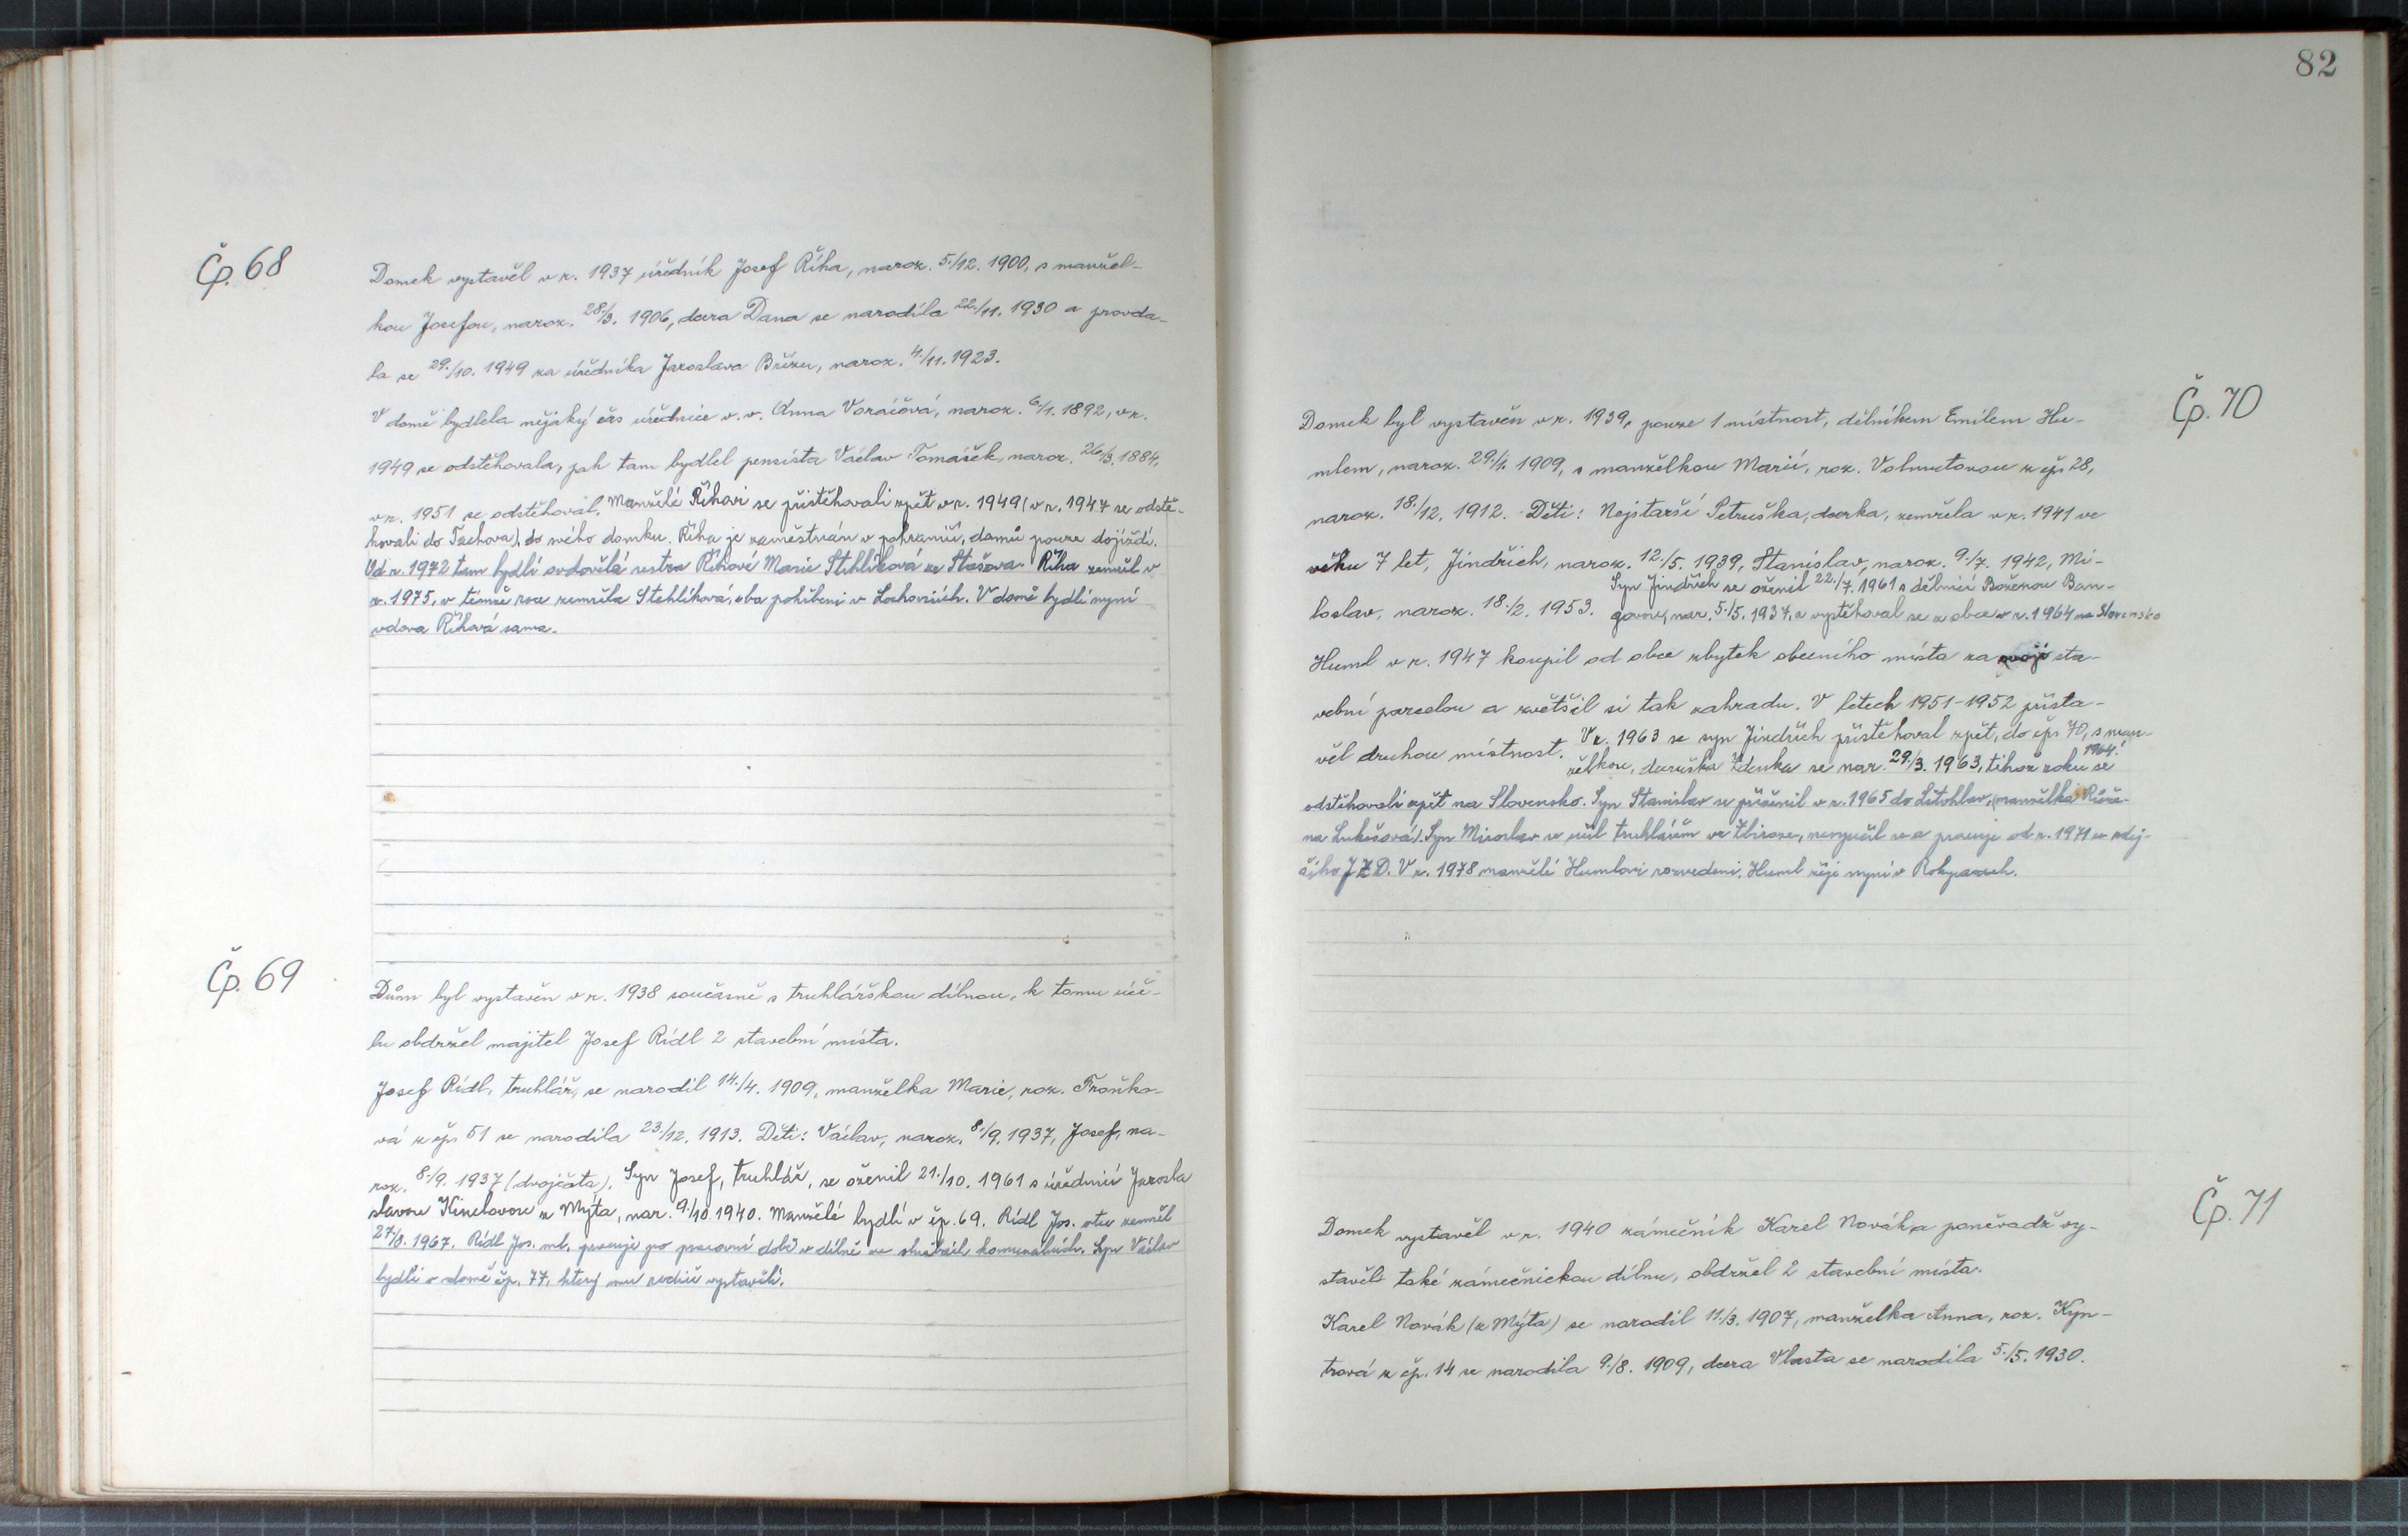 Čp. 68
Domek vystavěl v r. 1937 úředník Josef Říha, naroz. 5./12. 1900, s manžel-
kou Josefou, naroz. 28/3. 1906, dcera Dana se narodila 22./11. 1930 a provda-
la se 29./10. 1949 za úředníka Jaroslava Břízu, naroz. 4./11. 1923.
V domě bydlela nějaký čas úřednice v. v. Anna Voráčová, naroz. 6/1. 1892, v r.
1949 se odstěhovala, pak tam bydlel pensista Václav Tomášek, naroz. 26/3. 1884,
v r. 1951 se odstěhoval. Manželé Říhovi se přistěhovali zpět v r. 1949 (v r. 1947 se odstě-
hovali do Tachova), do svého domku. Říha je zaměstnán v pohraničí, domů pouze dojíždí.
Od r. 1972 tam bydlí ovdovělá sestra Říhové Marie Stehlíková ze Stašova. Říha zemřel v
r. 1975, v témže roce zemřela Stehlíková, oba pohřbeni v Lochovicích. V domě bydlí nyní
vdova Říhová sama.
Čp. 69
Dům byl vystavěn v r. 1938 současně s truhlářskou dílnou, k tomu úče-
lu obdržel majitel Josef Rídl 2 stavební místa.
Josef Rídl, truhlář, se narodil 14./4. 1909, manželka Marie, roz. Froňko-
vá z čp. 51 se narodila 23./12. 1913. Děti: Václav, naroz. 8./9. 1937, Josef, na-
roz. 8./9. 1937 (dvojčata). Syn Josef, truhlář, se oženil 21./10. 1961 s úřednicí Jarosla
slavou Kinclovou z Mýta, nar. 9./10 1940. Manželé bydlí v čp. 69. Rídl Jos. otec zemřel
27/8. 1967. Rídl Jos. ml. pracuje po pracovní době v dílně ve službách komunálních. Syn Václav
bydlí v domě čp. 77, který mu rodiče vystavěli.
82
Čp. 70
Domek byl vystavěn v r. 1939, pouze 1 místnost, dělníkem Emilem Hu-
mlem, naroz. 29./1. 1909, s manželkou Marií, roz. z čp. 28,
naroz. 18./12. 1912. Děti: Nejstarší Petruška, dcerka, zemřela v r. 1941 ve
věku 7 let, Jindřich, naroz. 12./5. 1939, Stanislav, naroz. 9./7. 1942, Mi-
Syn Jindřich se oženil 22./7. 1961 s dělnicí Boženou Ban-
loslav, naroz. 18./2. 1953. govou, nar. 5./5. 1937, a vystěhoval se z obce v r. 1964 na Slovensko
Huml v r. 1947 koupil od obce zbytek obecního místa za svojí sta-
vební parcelou a zvětšil si tak zahradu. V letech 1951-1952 přista-
věl druhou místnost. V r. 1963 se syn Jindřich přistěhoval zpět, do čp. 70, s man-
želkou, dceruška Zdenka se nar. 29./3. 1963, téhož roku se 1964!
odstěhovali zpět na Slovensko. Syn Stanislav se přiženil v r. 1965 do Litohlav, (manželka Růže-
na Lukešová). Syn Miroslav se učil truhlářem ve Zbiroze, nevyučil se a pracuje od r. 1971 u zdej-
šího JZD. V r. 1978 manželé Humlovi rozvedeni. Huml žije nyní v Rokycanech.
Čp. 71
Domek vystavěl v r. 1940 zámečník Karel Novák, a poněvadž vy-
stavěl také zámečnickou dílnu, obdržel 2 stavební místa.
Karel Novák (z Mýta) se narodil 11./3. 1907, manželka Anna, roz. Kyn-
trová z čp. 14 se narodila 9./8. 1909, dcera Vlasta se narodila 5./5. 1930.